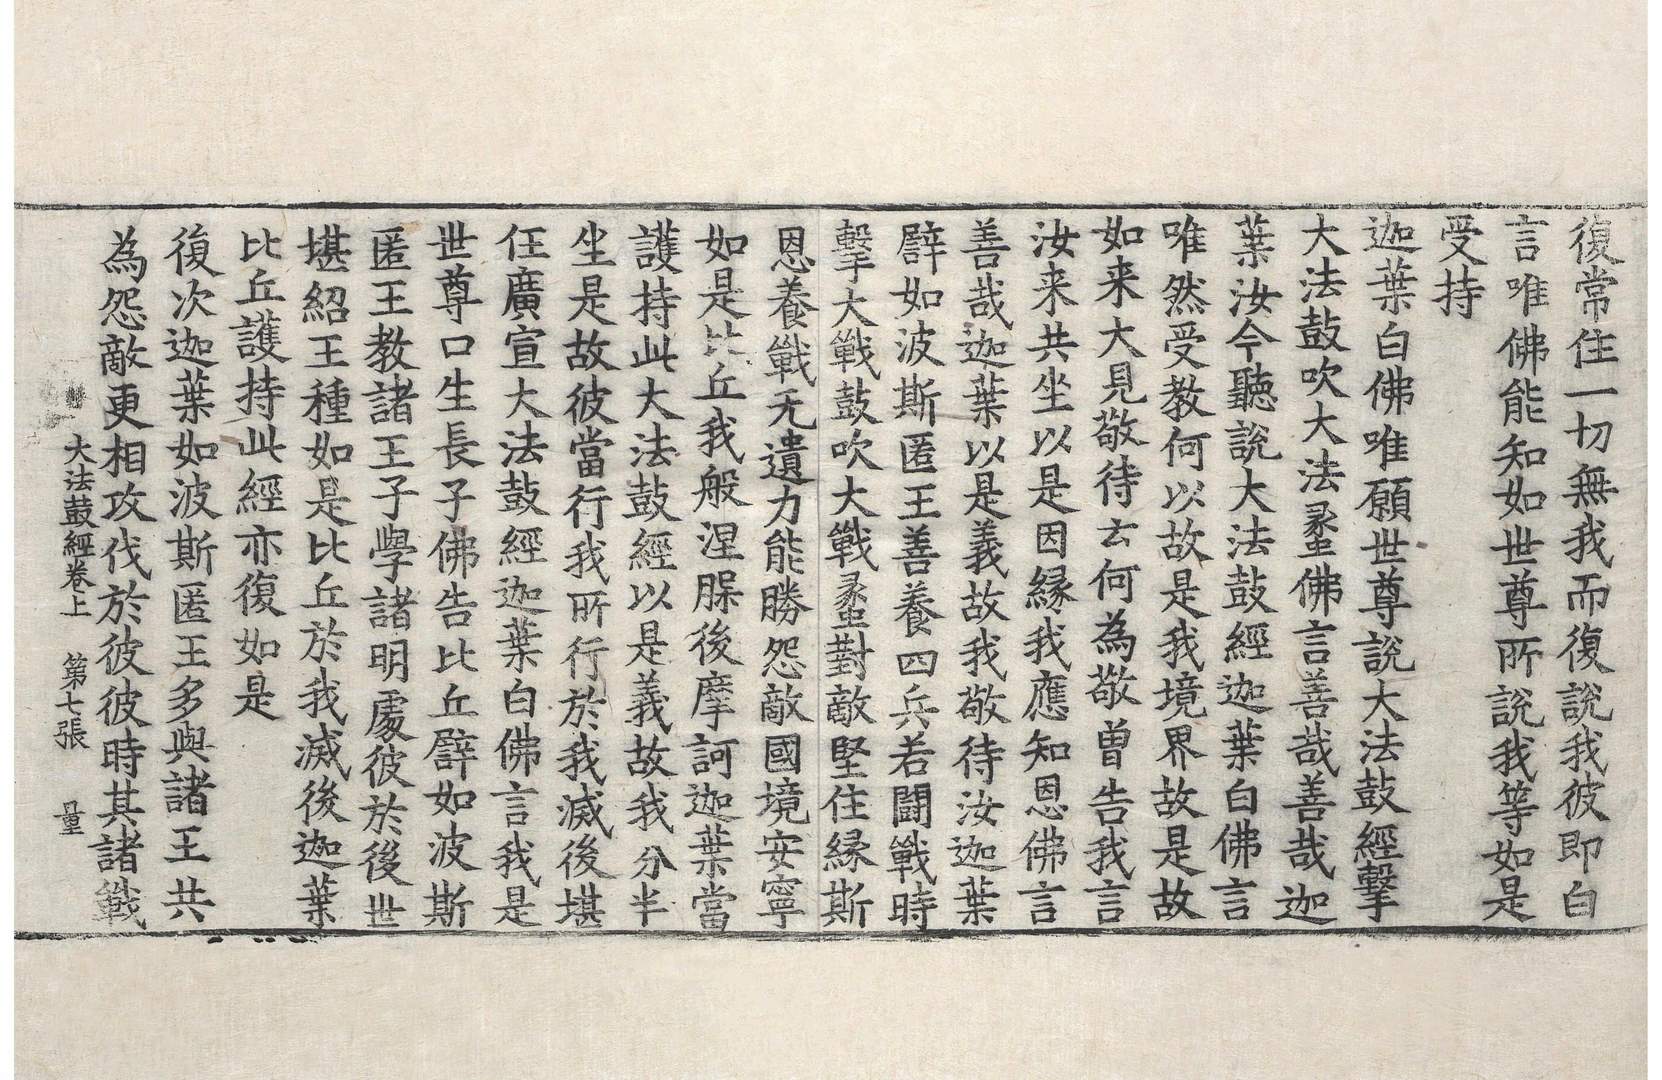 復常住一切無我而復說我彼即白
言唯佛能知如世尊所說我等如是
受持
迦葉白佛唯願世尊說大法鼓經擊
大法鼓吹大法蠡佛言善哉善哉迦
葉汝今聽說大法鼓經迦葉白佛言
唯然受教何以故是我境界故是故
如来大見敬待云何為敬曾告我言
汝来共坐以是因緣我應知恩佛言
善哉迦葉以是義故我敬待汝迦葉
譬如波斯匿王善養四兵若鬪戰時
擊大戰鼓吹大戰蠡對敵堅住緣斯
恩養戰无遺力能勝怨敵國境安寧
如是比丘我般涅槃後摩訶迦葉當
護持此大法鼓經以是義故我分半
坐是故彼當行我所行於我滅後堪
任廣宣大法鼓經迦葉白佛言我是
世尊口生長子佛告比丘譬如波斯
匿王教諸王子學諸明處彼於後世
堪紹王種如是比丘於我滅後迦葉
比丘護持此經亦復如是
復次迦葉如波斯匿王多與諸王共
為怨敵更相攻伐於彼彼時其諸戰
大法鼓經卷上　第七張　量